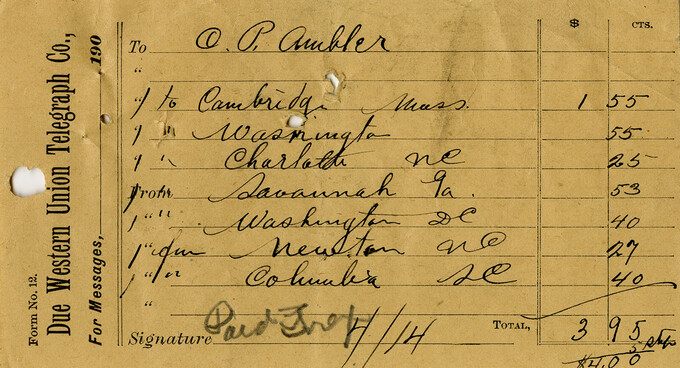 Form No. 12.
Due Western Union Telegraph Co.,
For Messages, 190
$ CTS.
To O. P. Ambler
"
1 to Cambridge Mass. 1 55
1 " Washington 55
1 " Charlotte NC 25
From Savannah Ga. 53
1 " " Washington DC 40
1 " from Newton NC 27
1 " " Columbia SC 40
"
Signature Paid 4/14 TOTAL, 3 95
5
$4.00